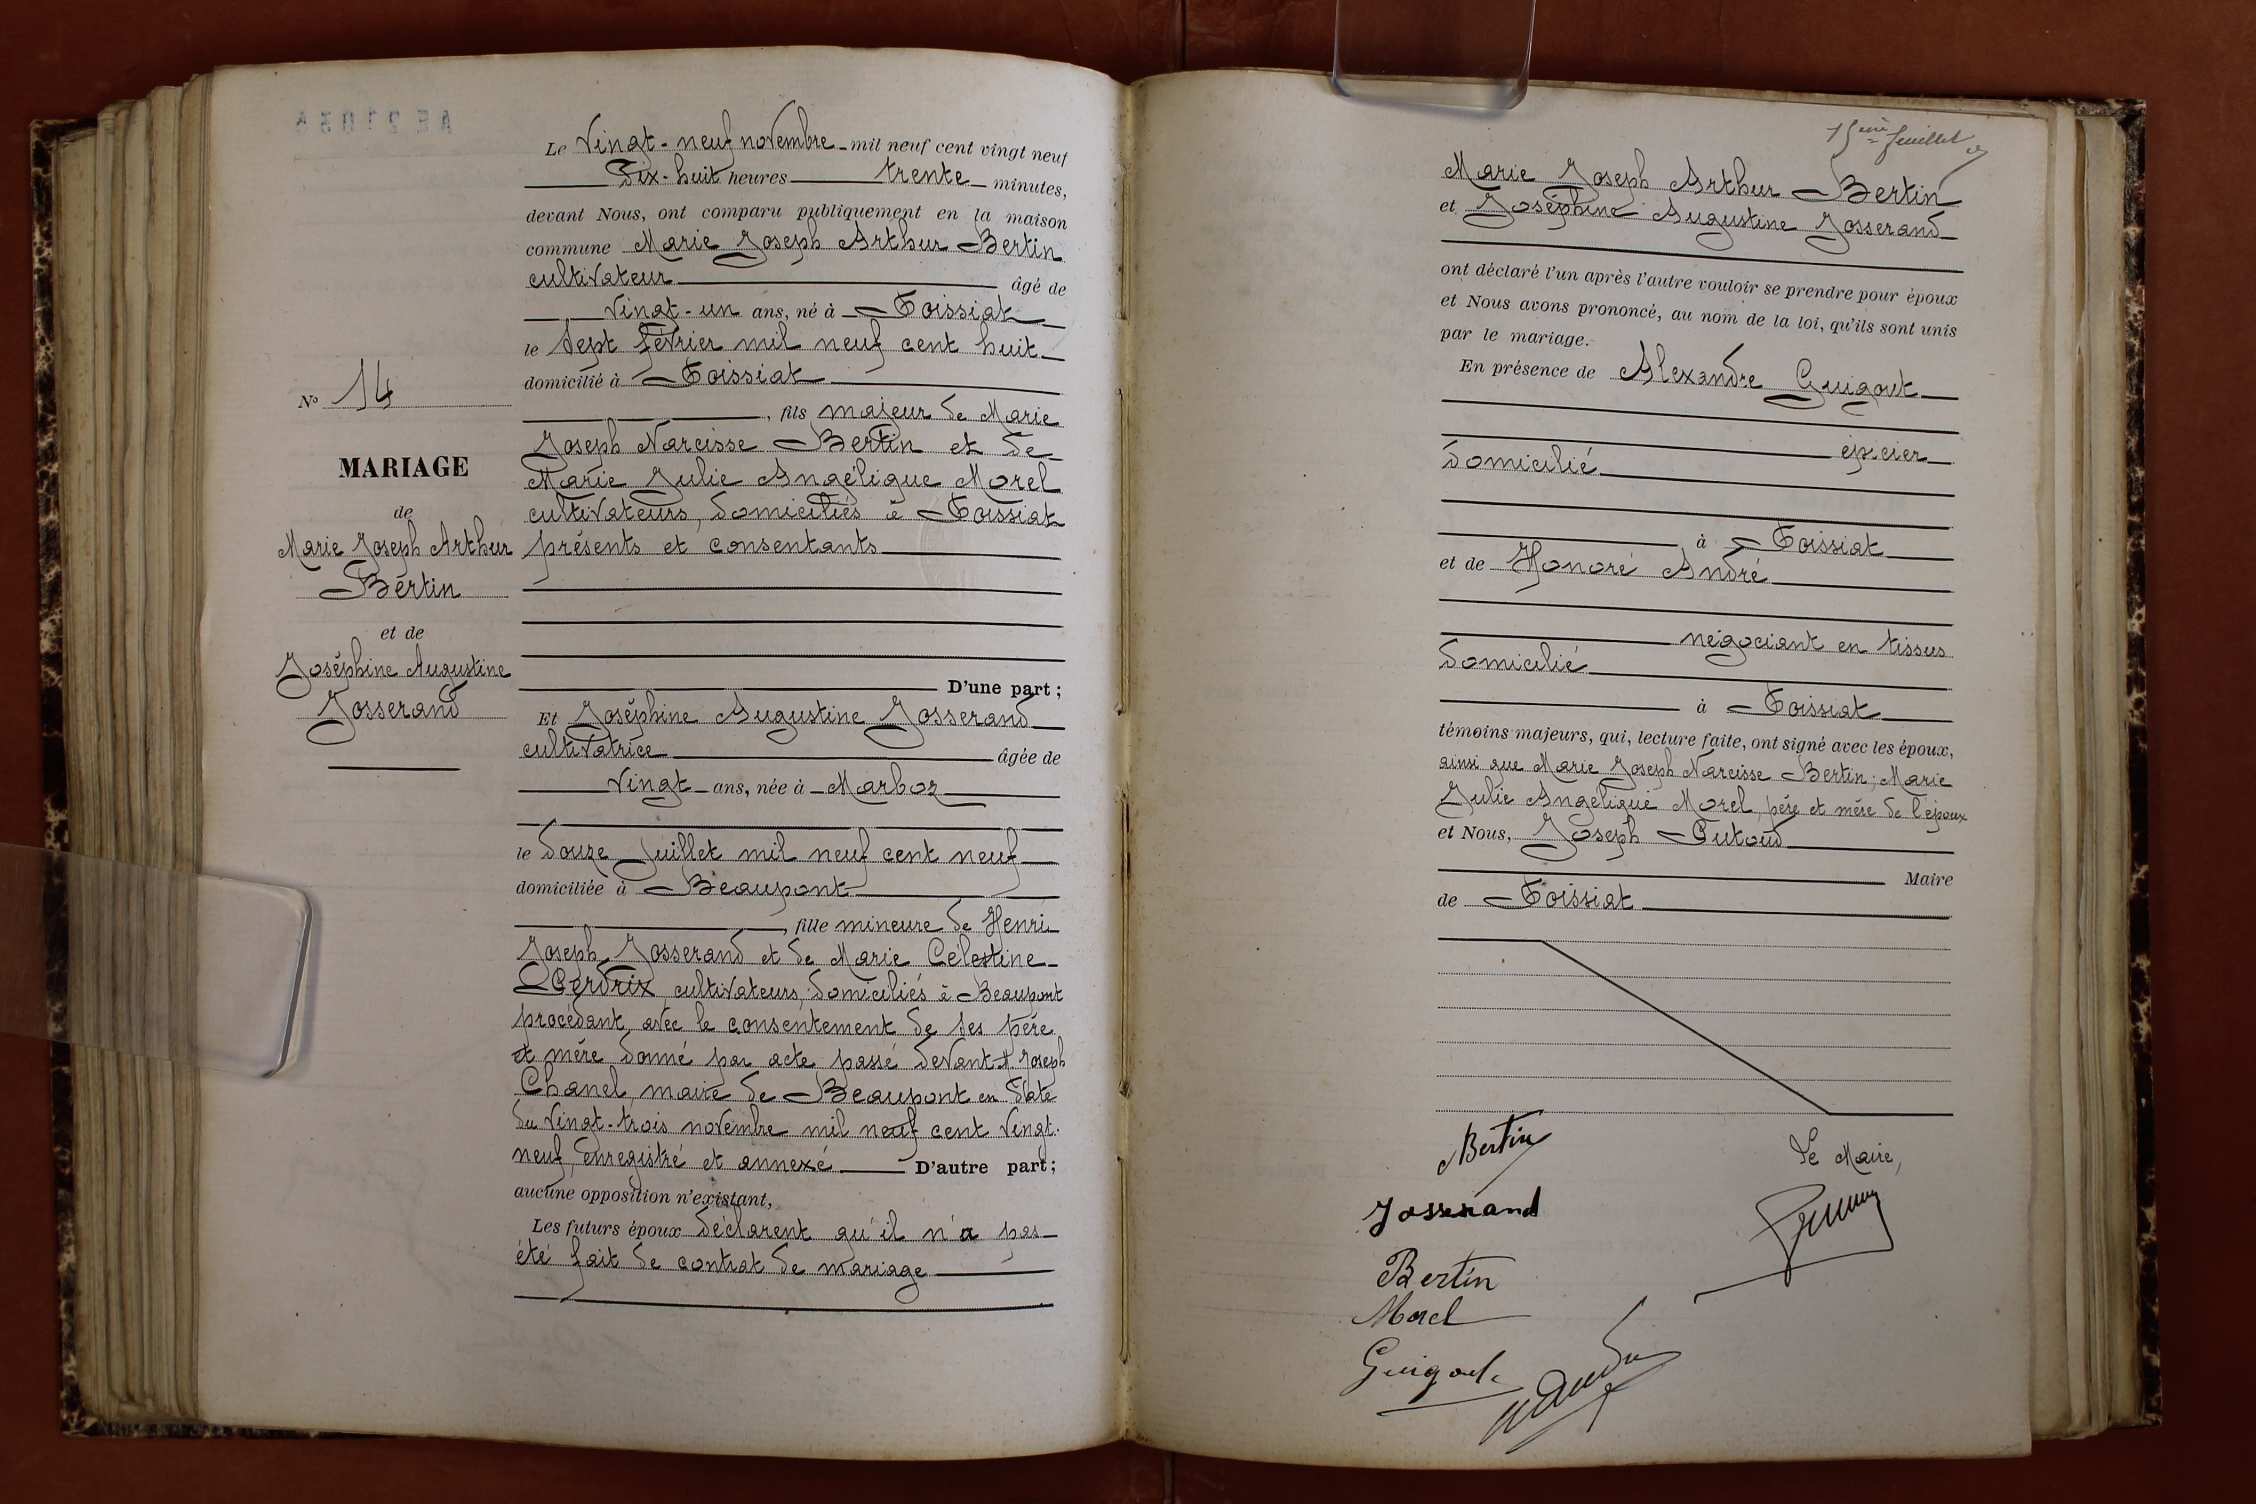 N° 14
MARIAGE
de
Marie Joseph Arthur
Bertin
et de
Joséphine Augustine
Josserand
Le Vingt-neuf novembre mil neuf cent vingt neuf
Dix-huit heures trente minutes,
devant Nous, ont comparu publiquement en la maison
commune Marie Joseph Arthur Bertin
cultivateur âgé de
vingt-un ans, né à Foissiat
le sept février mil neuf cent huit
domicilié à Foissiat
, fils majeur de Marie
Joseph Narcisse Bertin et de
Marie Julie Angélique Morel
cultivateurs, domiciliés à Foissiat
présents et consentants
D'une part ;
Et Joséphine Augustine Josserand
cultivatrice âgée de
vingt ans, née à Marboz
le douze Juillet mil neuf cent neuf
domiciliée à Beaupont
, fille mineure de Henri
Joseph Josserand et de Marie Célestine
Perdrix cultivateurs, domiciliés à Beaupont
procédant avec le consentement de ses père
et mère donné par acte passé devant Joseph
Chanel maire de Beaupont en date
du vingt-trois novembre mil neuf cent vingt-
neuf, enregistré et annexé D'autre part ;
aucune opposition n'existant,
Les futurs époux déclarent qu'il n'a pas
été fait de contrat de mariage
15ème feuillet
Marie Joseph Arthur Bertin
et Joséphine Augustine Josserand
ont déclaré l'un après l'autre vouloir se prendre pour époux
et Nous avons prononcé, au nom de la loi, qu'ils sont unis
par le mariage.
En présence de Alexandre Guigout
épicier
domicilié
à Foissiat
et de Honoré André
négociant en tissus
domicilié
à Foissiat
témoins majeurs, qui, lecture faite, ont signé avec les époux,
ainsi que Marie Joseph Narcisse Bertin; Marie
Julie Angélique Morel, père et mère de l'époux
et Nous, Joseph Putoud
Maire
de Foissiat
Bertin
Le Maire,
Josserand
Bertin
Morel
Guigout